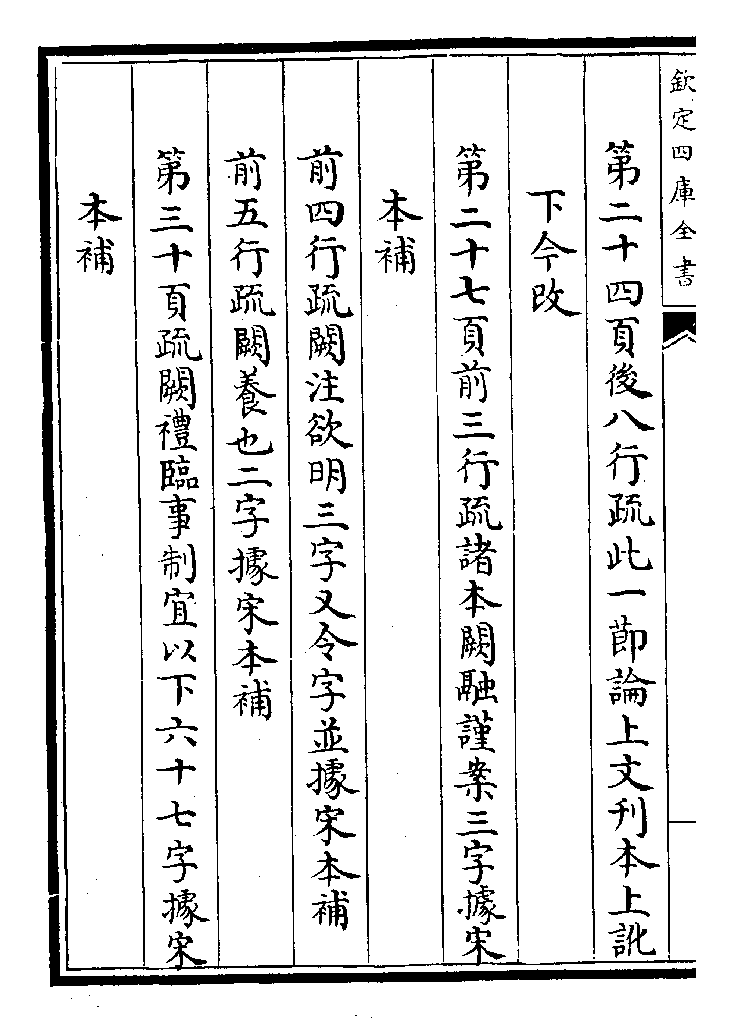 欽定四庫全書
第二十四頁後八行疏此一節論上文刋本上訛
下今改
第二十七頁前三行疏諸本闕融謹案三字據宋
本補
前四行疏闕注欲明三字又令字並據宋本補
前五行疏闕養也二字據宋本補
第三十頁疏闕禮臨事制宜以下六十七字據宋
本補